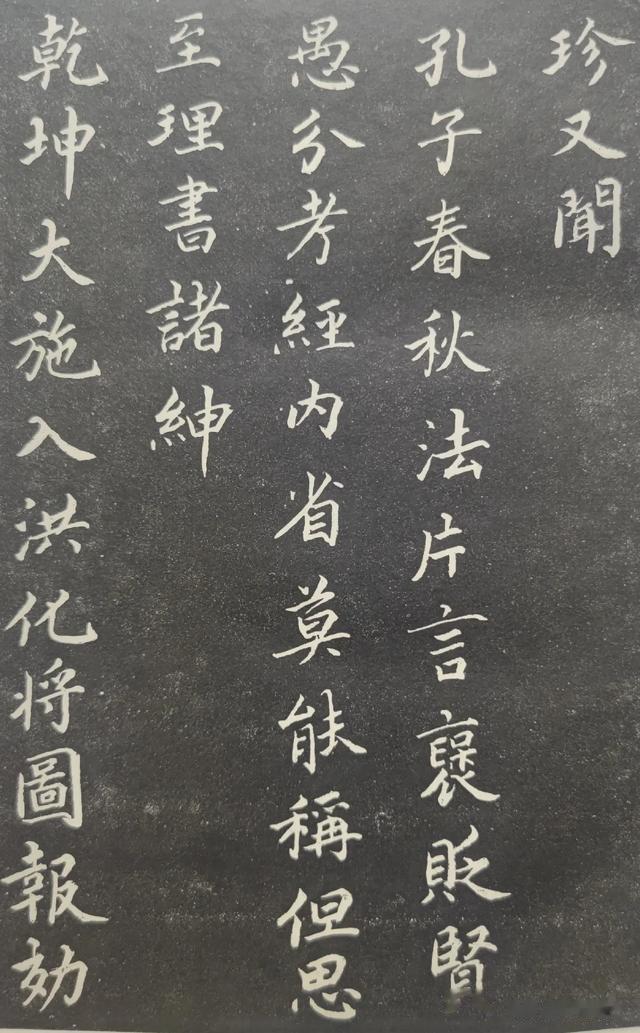 珍又聞
孔子春秋法片言褒貶賢
愚分考經内省莫能稱但思
至理書諸紳
乾坤大施入洪化將圖報効